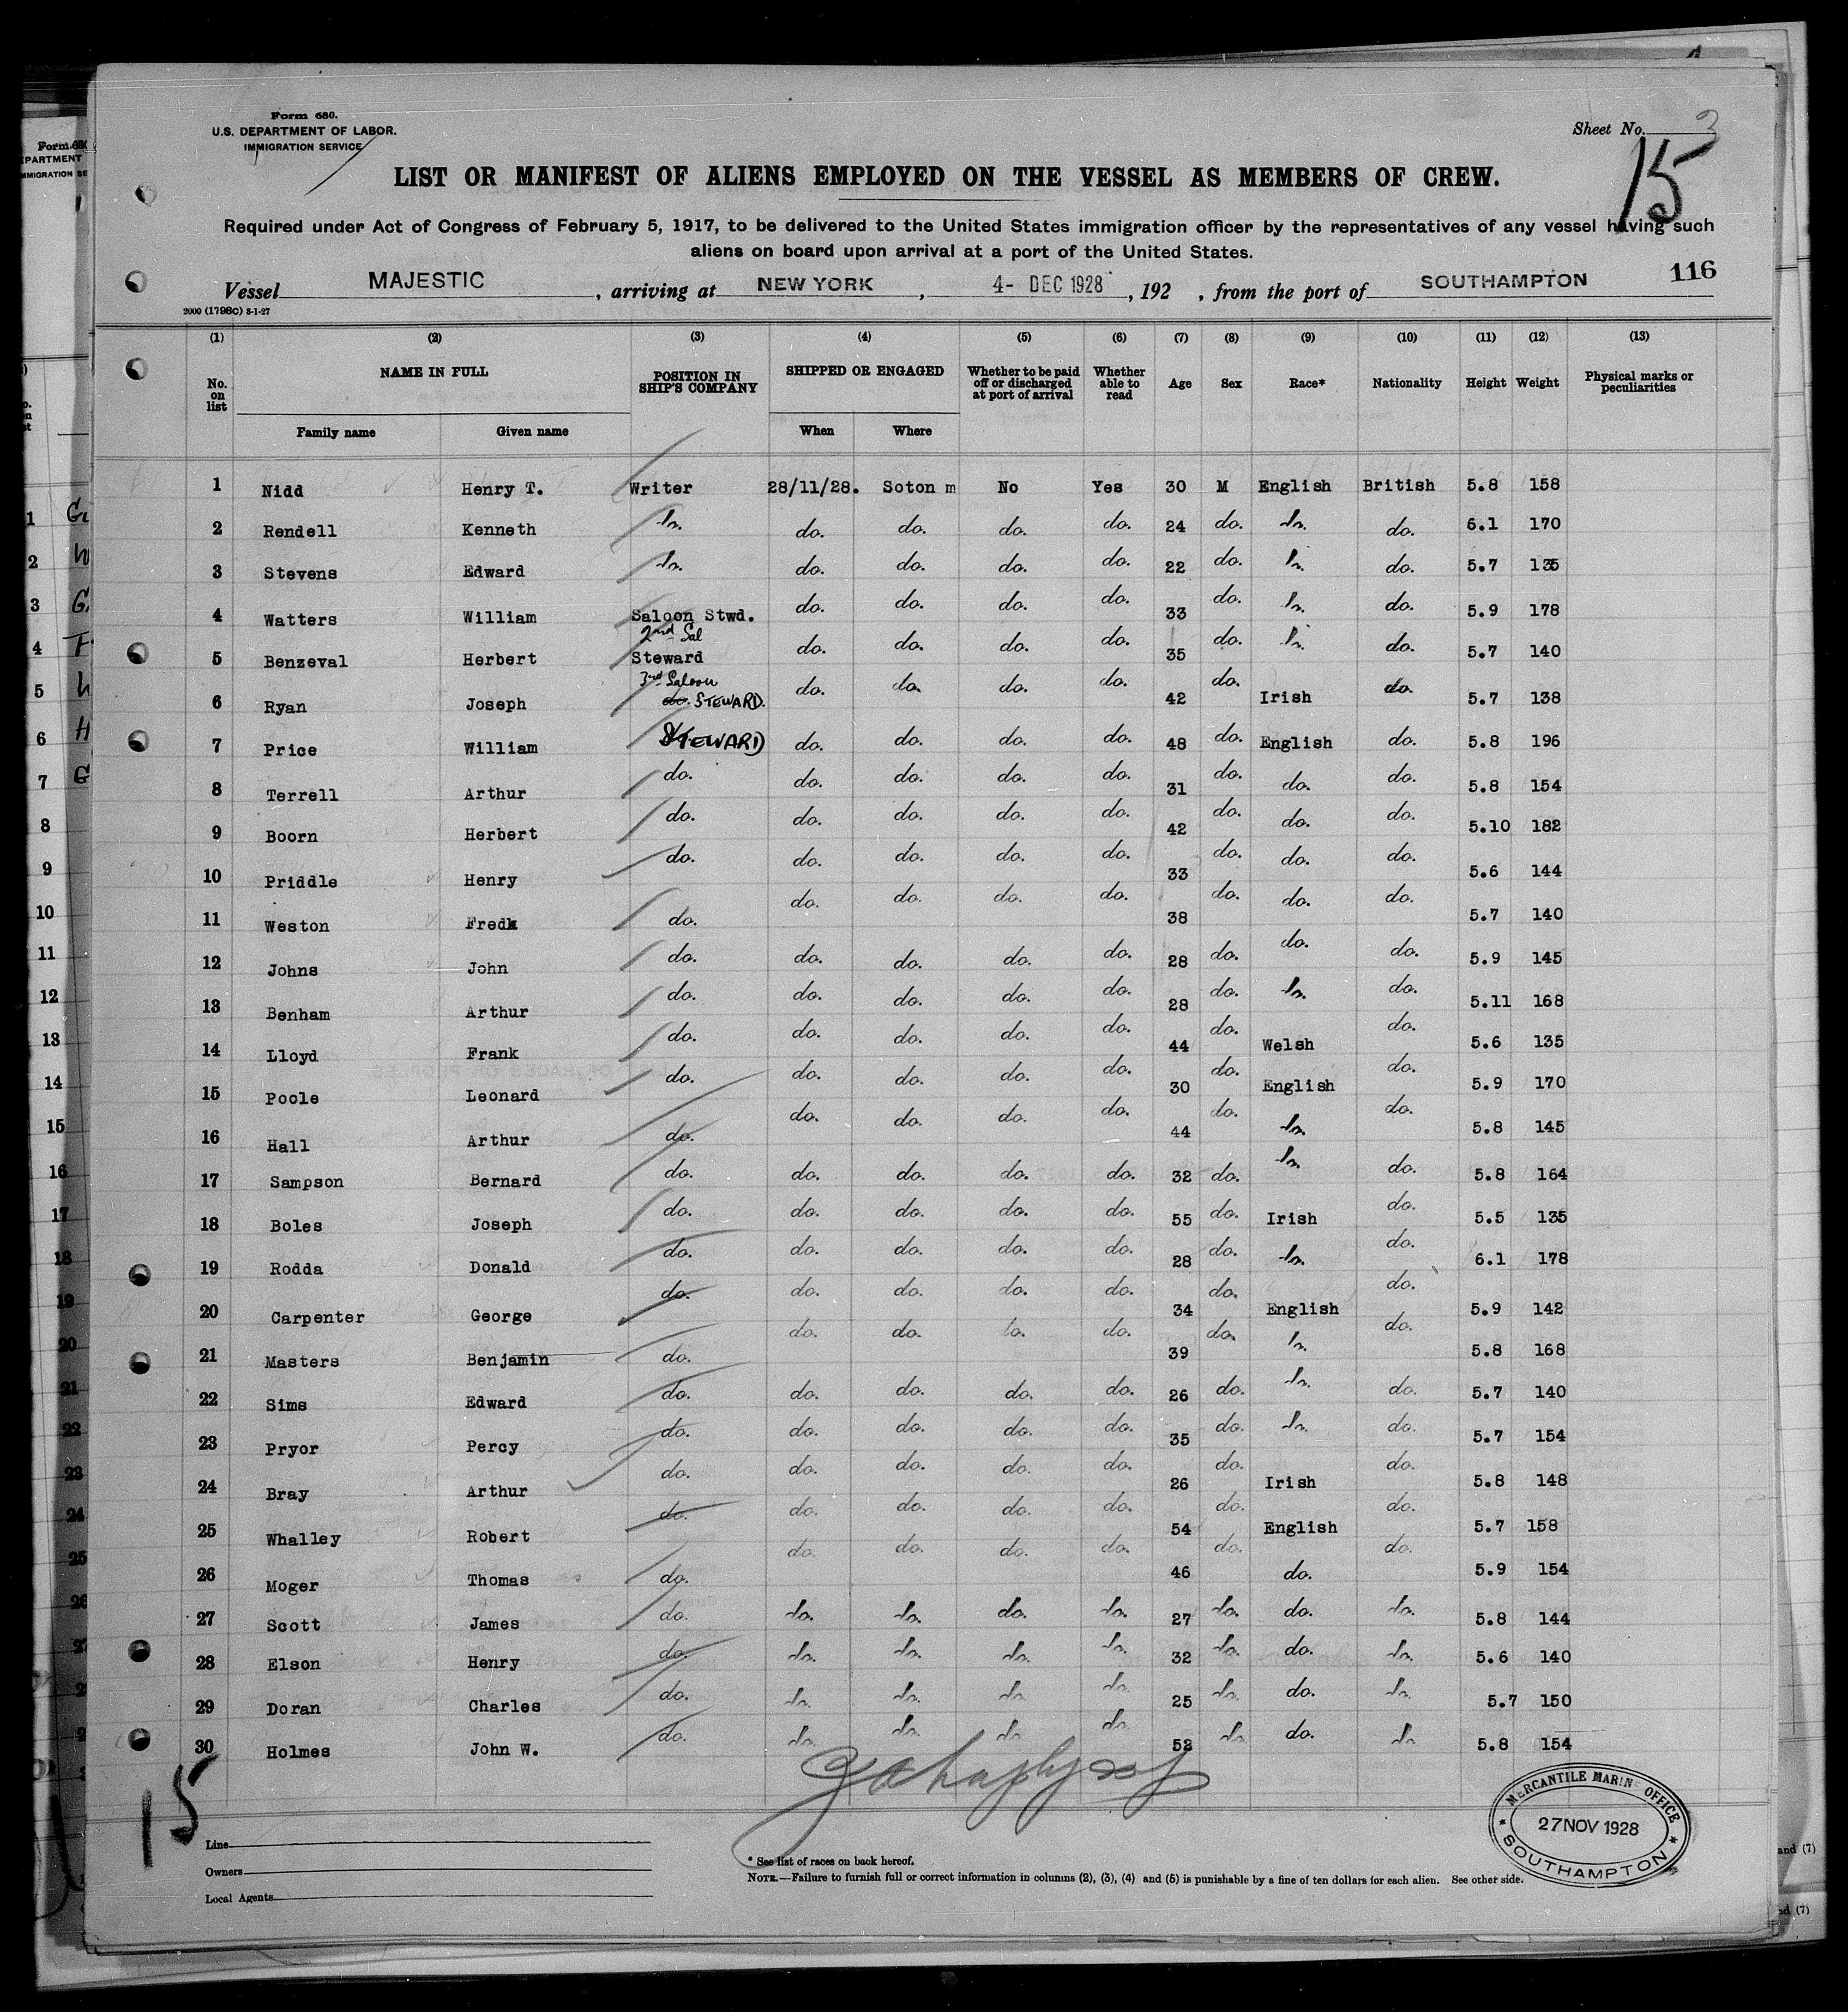 Form 680.
U.S. DEPARTMENT OF LABOR.
IMMIGRATION SERVICE
Sheet No. 3
15
LIST OR MANIFEST OF ALIENS EMPLOYED ON THE VESSEL AS MEMBERS OF CREW.
Required under Act of Congress of February 5, 1917, to be delivered to the United States immigration officer by the representatives of any vessel having such
aliens on board upon arrival at a port of the United States.
116
Vessel MAJESTIC , arriving at NEW YORK , 4- DEC 1928 , 192 , from the port of SOUTHAMPTON
2000 (1798C) 3-1-27
(1) (2) (3) (4) (5) (6) (7) (8) (9) (10) (11) (12) (13)
No. on list NAME IN FULL POSITION IN SHIP'S COMPANY SHIPPED OR ENGAGED Whether to be paid off or discharged at port of arrival Whether able to read Age Sex Race* Nationality Height Weight Physical marks or peculiarities
Family name Given name When Where
1 Nidd Henry T. Writer 28/11/28. Soton m No Yes 30 M English British 5.8 158
2 Rendell Kenneth do. do. do. do. do. 24 do. do. do. 6.1 170
3 Stevens Edward do. do. do. do. do. 22 do. do. do. 5.7 135
4 Watters William Saloon Stwd. do. do. do. do. 33 do. do. do. 5.9 178
5 Benzeval Herbert 2nd Sal Steward do. do. do. do. 35 do. do. do. 5.7 140
6 Ryan Joseph 3rd Saloon do. STEWARD. do. do. do. do. 42 do. Irish do. 5.7 138
7 Price William STEWARD do. do. do. do. 48 do. English do. 5.8 196
8 Terrell Arthur do. do. do. do. do. 31 do. do. do. 5.8 154
9 Boorn Herbert do. do. do. do. do. 42 do. do. do. 5.10 182
10 Priddle Henry do. do. do. do. do. 33 do. do. do. 5.6 144
11 Weston Fredk do. do. do. do. do. 38 do. do. do. 5.7 140
12 Johns John do. do. do. do. do. 28 do. do. do. 5.9 145
13 Benham Arthur do. do. do. do. do. 28 do. do. do. 5.11 168
14 Lloyd Frank do. do. do. do. do. 44 do. Welsh do. 5.6 135
15 Poole Leonard do. do. do. do. do. 30 do. English do. 5.9 170
16 Hall Arthur do. do. do. do. do. 44 do. do. do. 5.8 145
17 Sampson Bernard do. do. do. do. do. 32 do. do. do. 5.8 164
18 Boles Joseph do. do. do. do. do. 55 do. Irish do. 5.5 135
19 Rodda Donald do. do. do. do. do. 28 do. do. do. 6.1 178
20 Carpenter George do. do. do. do. do. 34 do. English do. 5.9 142
21 Masters Benjamin do. do. do. do. do. 39 do. do. do. 5.8 168
22 Sims Edward do. do. do. do. do. 26 do. do. do. 5.7 140
23 Pryor Percy do. do. do. do. do. 35 do. do. do. 5.7 154
24 Bray Arthur do. do. do. do. do. 26 do. Irish do. 5.8 148
25 Whalley Robert do. do. do. do. do. 54 do. English do. 5.7 158
26 Moger Thomas do. do. do. do. do. 46 do. do. do. 5.9 154
27 Scott James do. do. do. do. do. 27 do. do. do. 5.8 144
28 Elson Henry do. do. do. do. do. 32 do. do. do. 5.6 140
29 Doran Charles do. do. do. do. do. 25 do. do. do. 5.7 150
30 Holmes John W. do. do. do. do. do. 52 do. do. do. 5.8 154
15
Line
Owners
Local Agents
* See list of races on back hereof.
NOTE.—Failure to furnish full or correct information in columns (2), (3), (4) and (5) is punishable by a fine of ten dollars for each alien. See other side.
MERCANTILE MARINE OFFICE
27 NOV 1928
SOUTHAMPTON